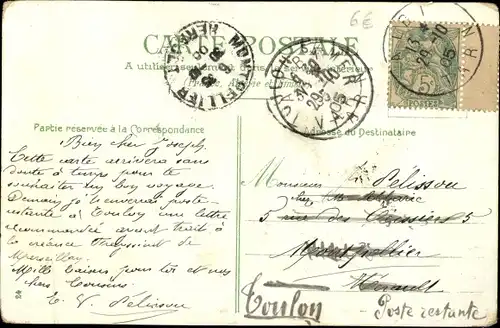 6€
CARTE POSTALE
A utilis
MONTPELLIER
HERAULT
TOULON-S-MER
VAR
29-10
05
5
POSTES
Partie réservée à la Correspondance
Adresse du Destinataire
Bien cher Joseph,
Cette carte arrivera sans
doute à temps pour te
souhaiter un bon voyage.
Demain je t'enverrai poste-
restante à Toulon une lettre
recommandée ayant trait à
la créance
Marseillan
Mille baisers pour toi et nos
chers Cousins
E. V. Pélissou
Monsieur Pélissou
chez
5 rue des 5
Montpellier
Hérault
Toulon - Poste restante